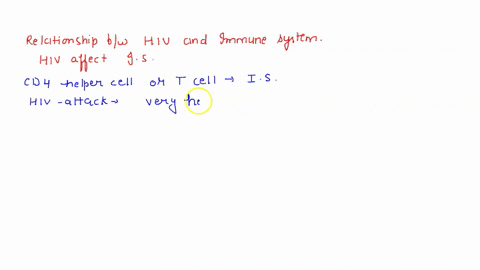 Relationship b/w HIV and Immune system.
HIV affect I.S.
CD4 helper cell or T cell → I.S.
HIV-attack → very he